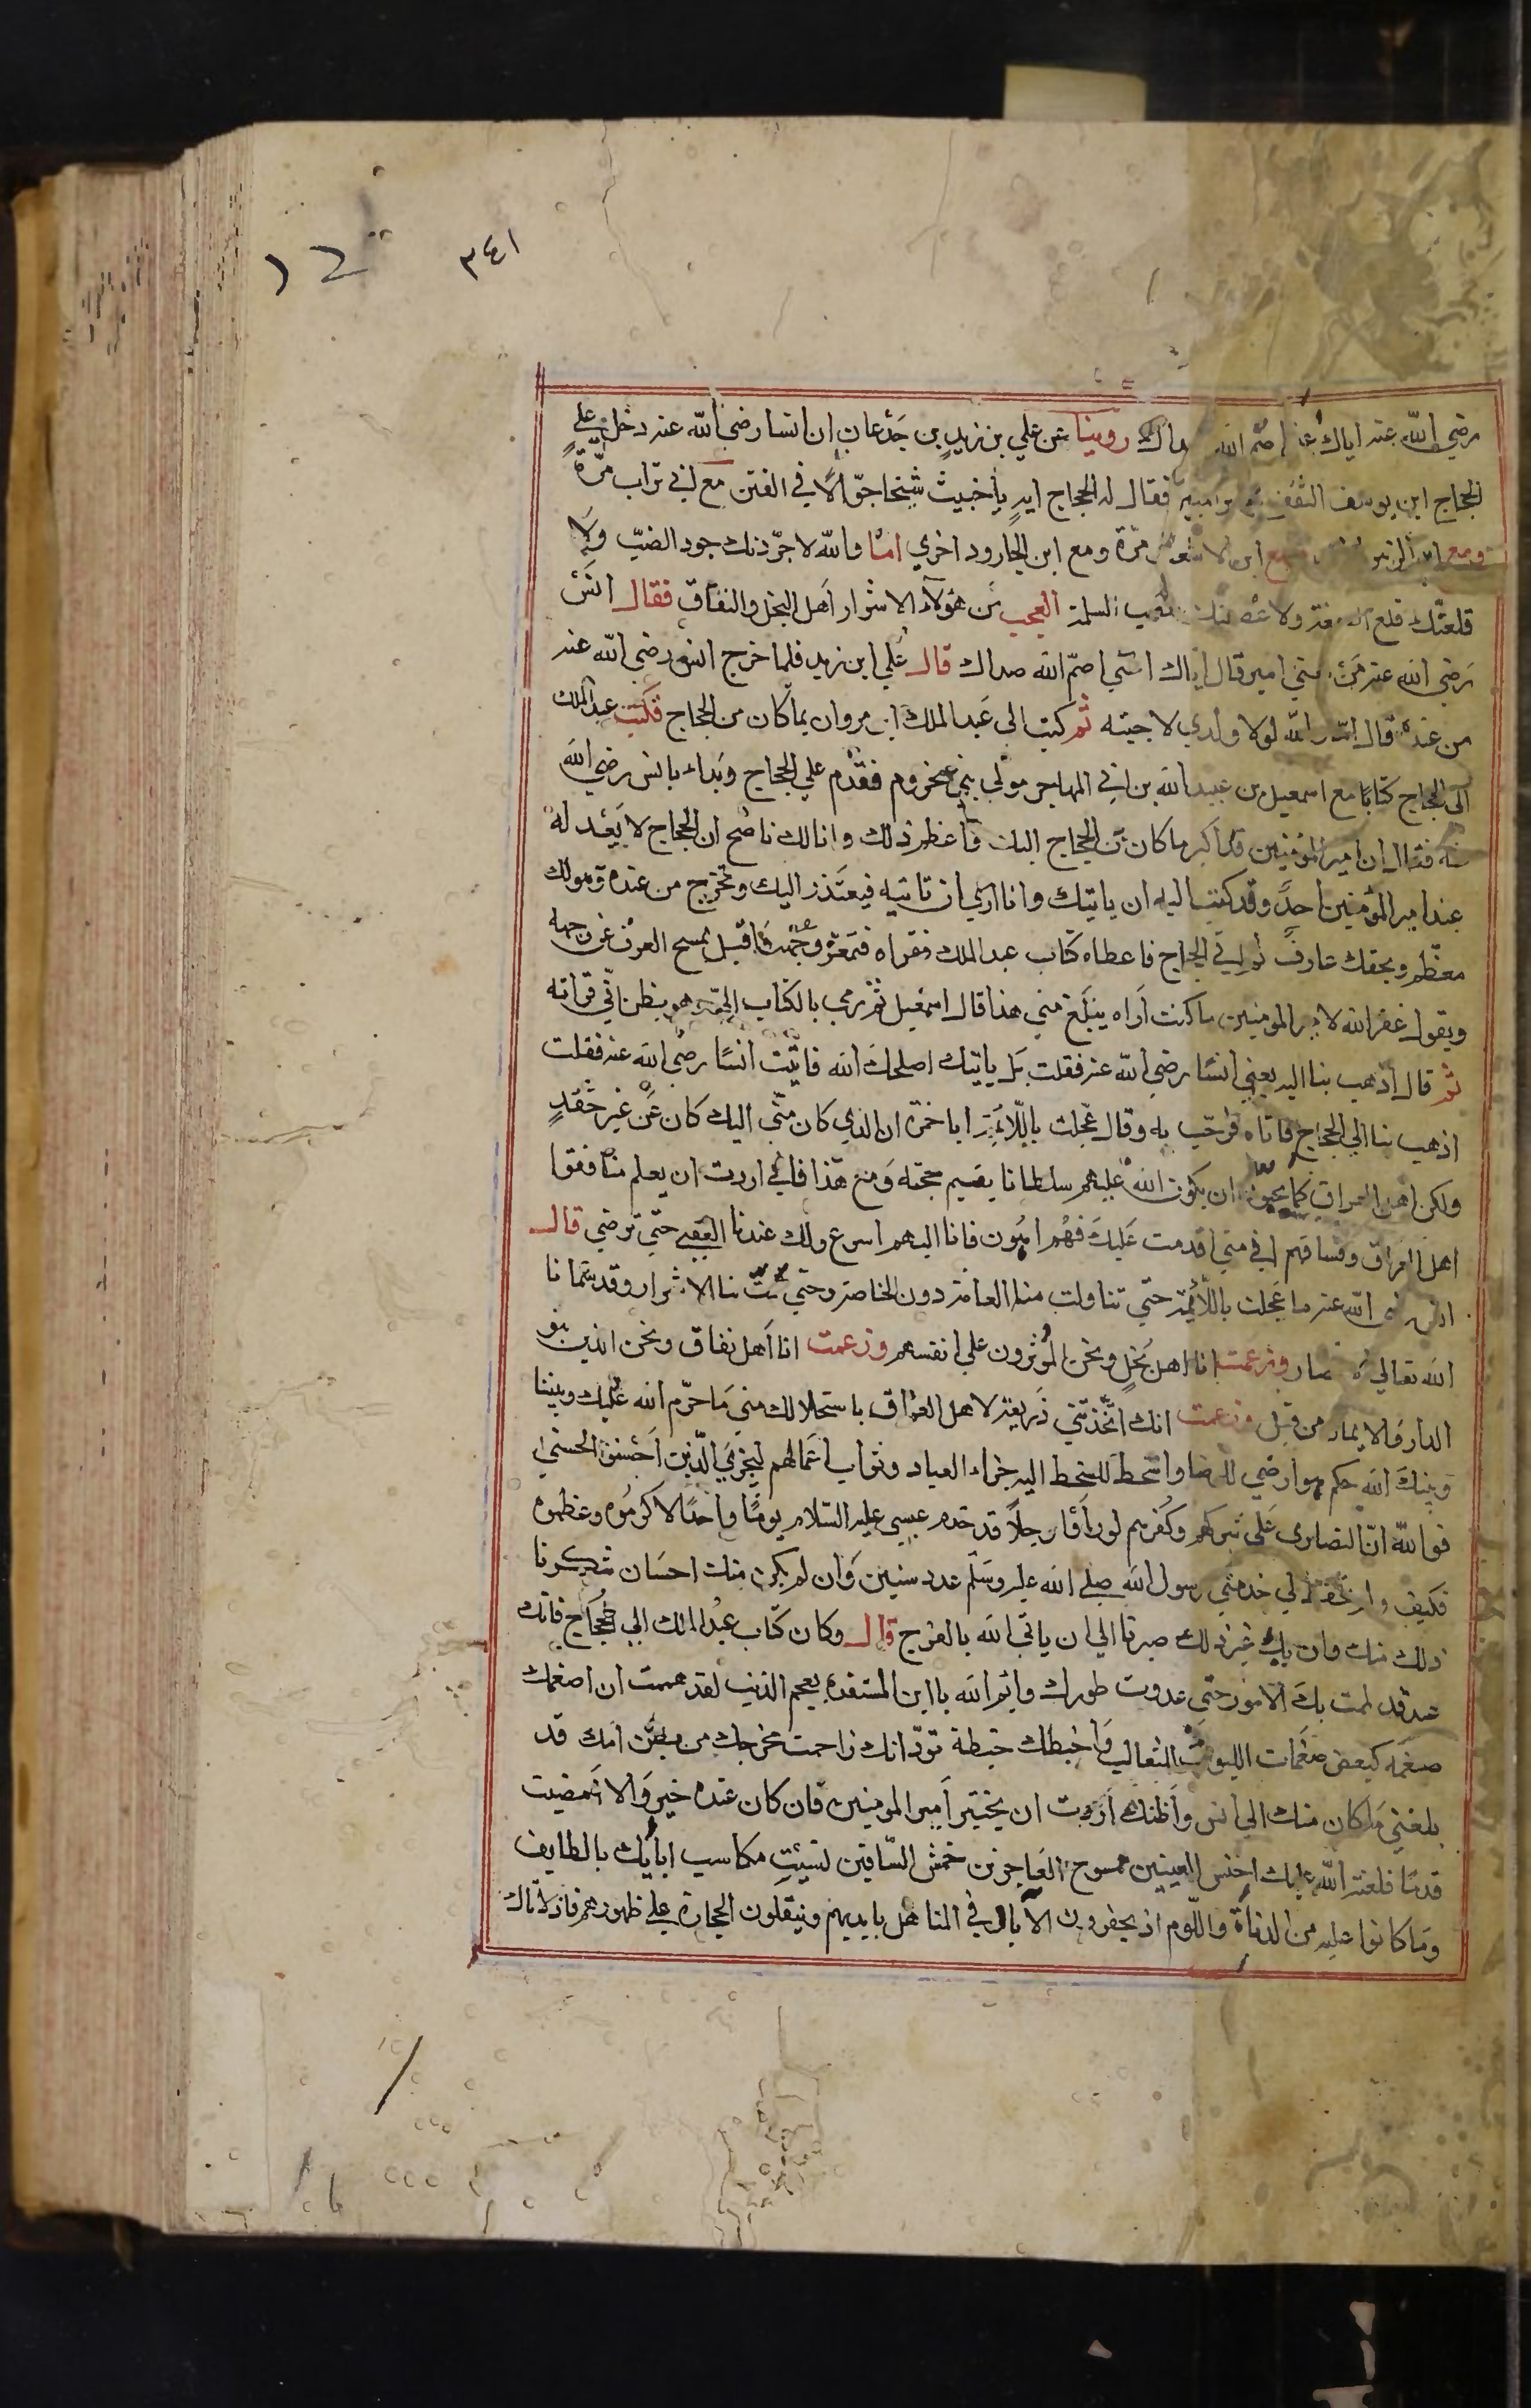 ٣٤١
رضي الله عنه اياك عنا اصم الله صداك روينا عن علي بن زيد بن جدعان ان انسا رضي الله عنه دخل علي
الحجاج ابن يوسف الثقفي فقال له الحجاج ايه يا خبيث شيخا جوّالا في الفتن مع ابي تراب مرّة
ومع ابن الزبير ومع ابن الاشعث مرّة ومع ابن الجارود اخري امّا والله لاجرّدنك جرد الضبّ ولا
قلعنّك قلع الصمغة ولاعصبنك عصب السلمة العجب من هؤلاء الاشرار اهل البخل والنفاق فقال انس
رضي الله عنه من يعني امير قال اياك اعني اصمّ الله صداك قال علي ابن زيد فلما خرج انس رضي الله عنه
من عنده قال اما والله لولا ولدي لاجبته ثم كتب الى عبد الملك ابن مروان بما كان من الحجاج فكتب عبد الملك
الى الحجاج كتابا مع اسمعيل بن عبيد الله بن ابي المهاجر مولي بني مخزوم فقدم علي الحجاج وبداء بانس رضي الله
عنه فقال ان امير المؤمنين قد اكبر ما كان من الحجاج اليك واعظم ذلك وانا لك ناصح ان الحجاج لا يعد له
عند امير المؤمنين احد وقد كتب اليه ان ياتيك وانا اري ان تاتيه فيعتذر اليك وتخرج من عنده وهو لك
معظم وبحقك عارف ثم اتي الحجاج فاعطاه كتاب عبد الملك فقراه فتمعّر وجهه فاقبل يمسح العرق عن وجهه
ويقول غفر الله لامير المومنين ما كنت اراه يبلغ مني هذا قال اسمعيل ثم رمي بالكتاب الي وهو يظن اني قراته
ثم قال اذهب بنا اليه يعني انسا رضي الله عنه فقلت بل ياتيك اصلحك الله فاتيت انسا رضي الله عنه فقلت
اذهب بنا الي الحجاج فاتاه فرحّب به وقال عجلت باللائمة ابا حمزة ان الذي كان منّي اليك كان عن غير حقد
ولكن اهل العراق لا يحبون ان يكون الله عليهم سلطانا يقيم حجته ومع هذا فاني اردت ان يعلم منافقوا
اهل العراق وفساقهم اني متي اقدمت عليك فهم اهون فانا اليهم اسرع ولك عندنا العتبي حتي ترضي قال
انس رضي الله عنه ما عجلت باللائمة حتي تناولت منا العامة دون الخاصة وحتي شمت بنا الاشرار وقد سمانا
الله تعالي الانصار وزعمت انا اهل بخل ونحن المؤثرون علي انفسهم وزعمت انا اهل نفاق ونحن الذين تبوؤ
الدار والايمان من قبل وزعمت انك اتخذتني ذريعة لاهل العراق باستحلالك مني ما حرّم الله عليك وبيننا
وبينك الله حكم هو ارضي للرضا واسخط للسخط اليه جزاء العباد وثواب اعمالهم ليجزي الذين احسنوا الحسني
فوالله انّ النصارى علي شركهم وكفرهم لو راوا رجلا قد خدم عيسي عليه السلام يوما واحدا لاكرموه وعظموه
فكيف لم تحفظ لي خدمتي رسول الله صلي الله عليه وسلم عدد سنين وان لم يكن منك احسان شكرنا
ذلك منك وان يك غير ذلك صبرنا الي ان ياتي الله بالفرج قال وكان كتاب عبد الملك الي الحجاج فانك
عبد قد طمت بك الامور حتي عدوت طورك وايم الله يا ابن المستفرمة بعجم الزبيب لقد هممت ان اضغمك
ضغمة كبعض ضغمات الليوث الثعالب واخبطك خبطة تودّ انك زاحمت مخرجك من بطن امك قد
بلغني ما كان منك الي انس واظنك اردت ان تختبر امير المومنين فان كان عنده غير والا امضيت
قدما فلعنة الله عليك اخفش العينين ممسوح الجاعرتين حمش الساقين نسيت مكاسب ابايك بالطايف
وما كانوا عليه من الدناة واللوم اذ يحفرون الابار في المناهل بايديهم وينقلون الحجارة علي ظهورهم فاذا اتاك